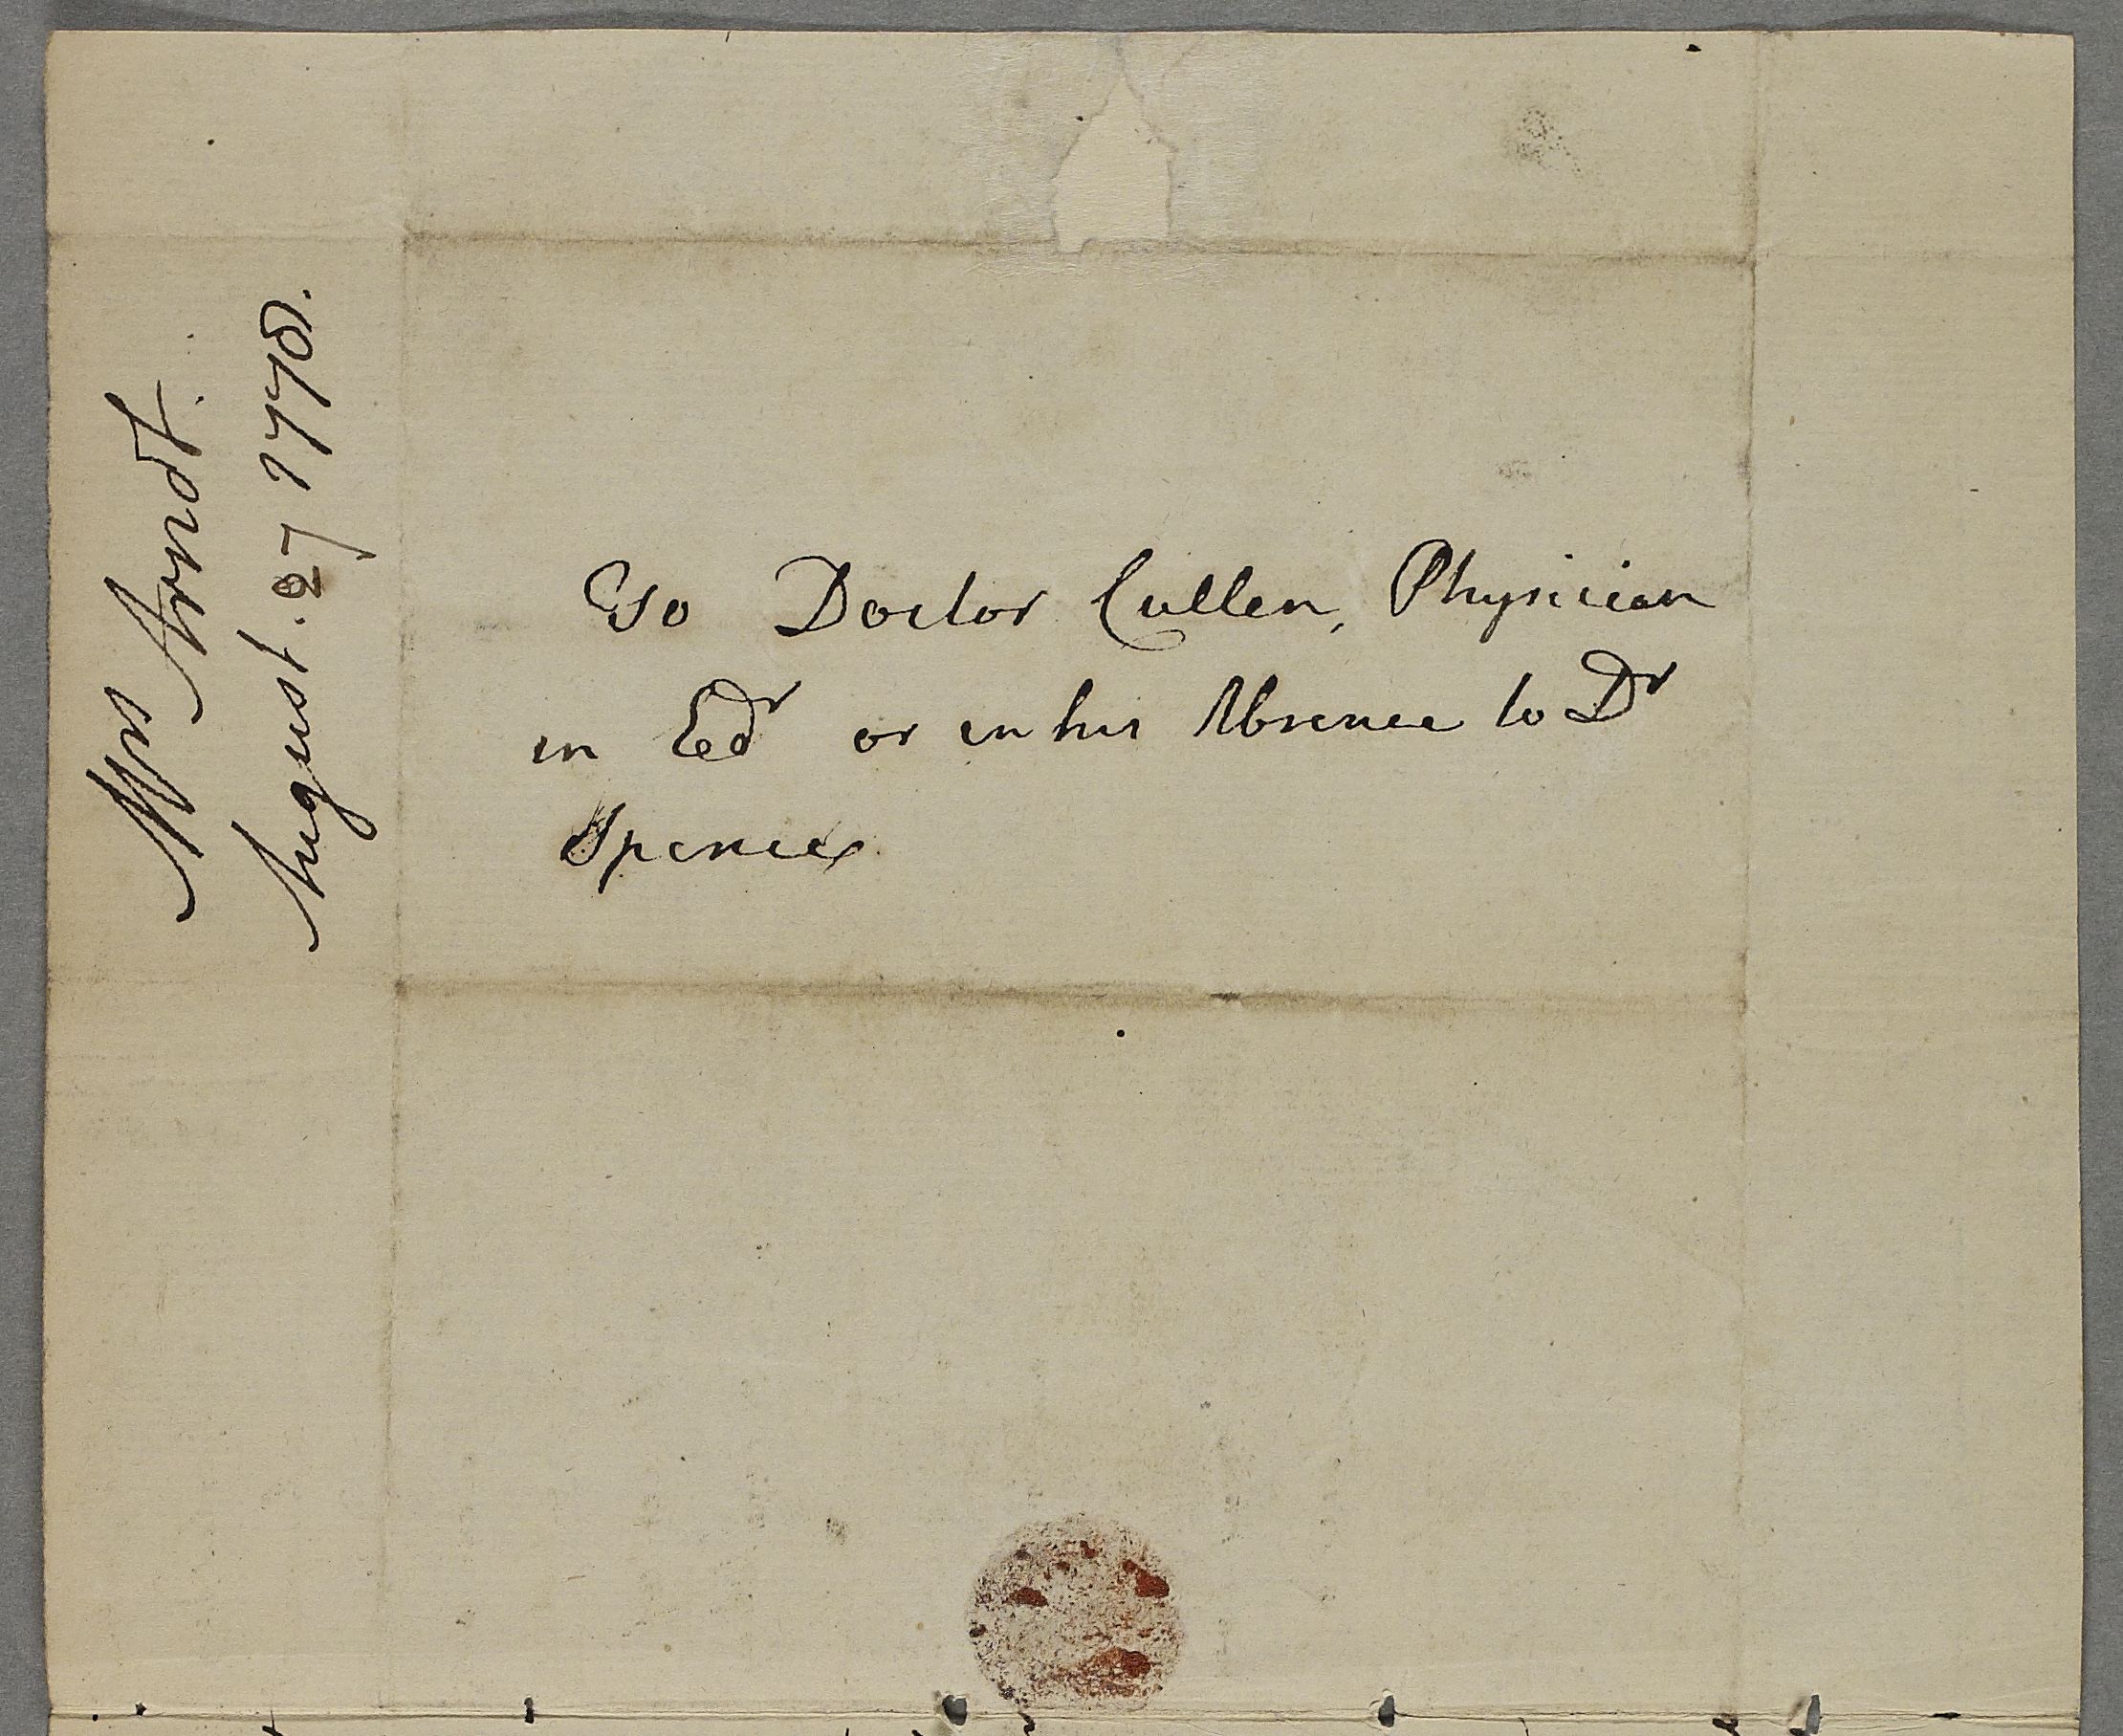 Mrs Arndt.
August. 27 1778.
To Doctor Cullen, Physician
in Edr or in his Absence to Dr
Spence